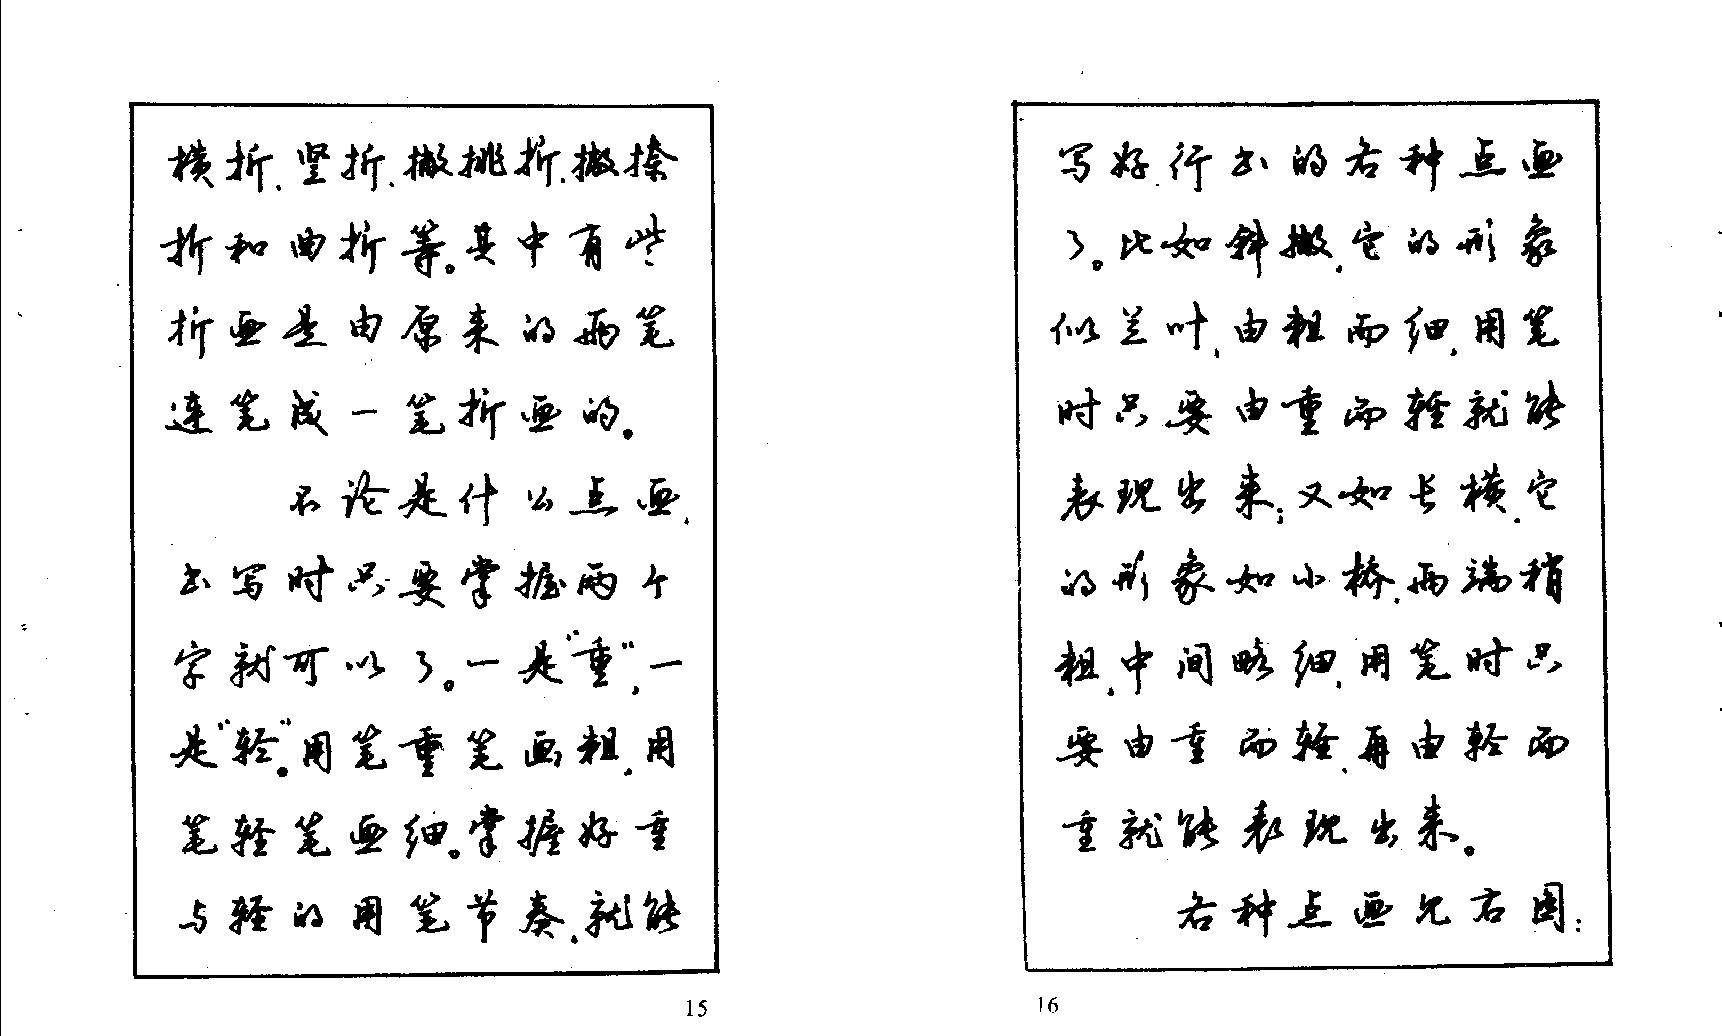 横折、竖折、撇挑折、撇捺
折和曲折等。其中有些
折画是由原来的两笔
连笔成一笔折画的。
不论是什么点画，
书写时只要掌握两个
字就可以了。一是“重”，一
是“轻”。用笔重笔画粗，用
笔轻笔画细。掌握好重
与轻的用笔节奏，就能
15
写好行书的各种点画
了。比如斜撇，它的形象
似兰叶，由粗而细，用笔
时只要由重而轻就能
表现出来；又如长横，它
的形象如小桥，两端稍
粗，中间略细，用笔时只
要由重而轻，再由轻而
重就能表现出来。
各种点画见右图：
16